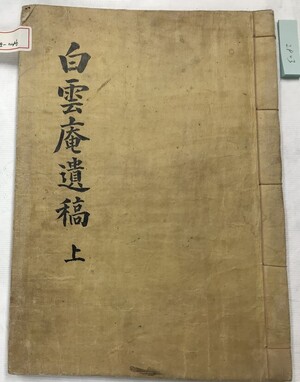 白雲庵遺稿
上